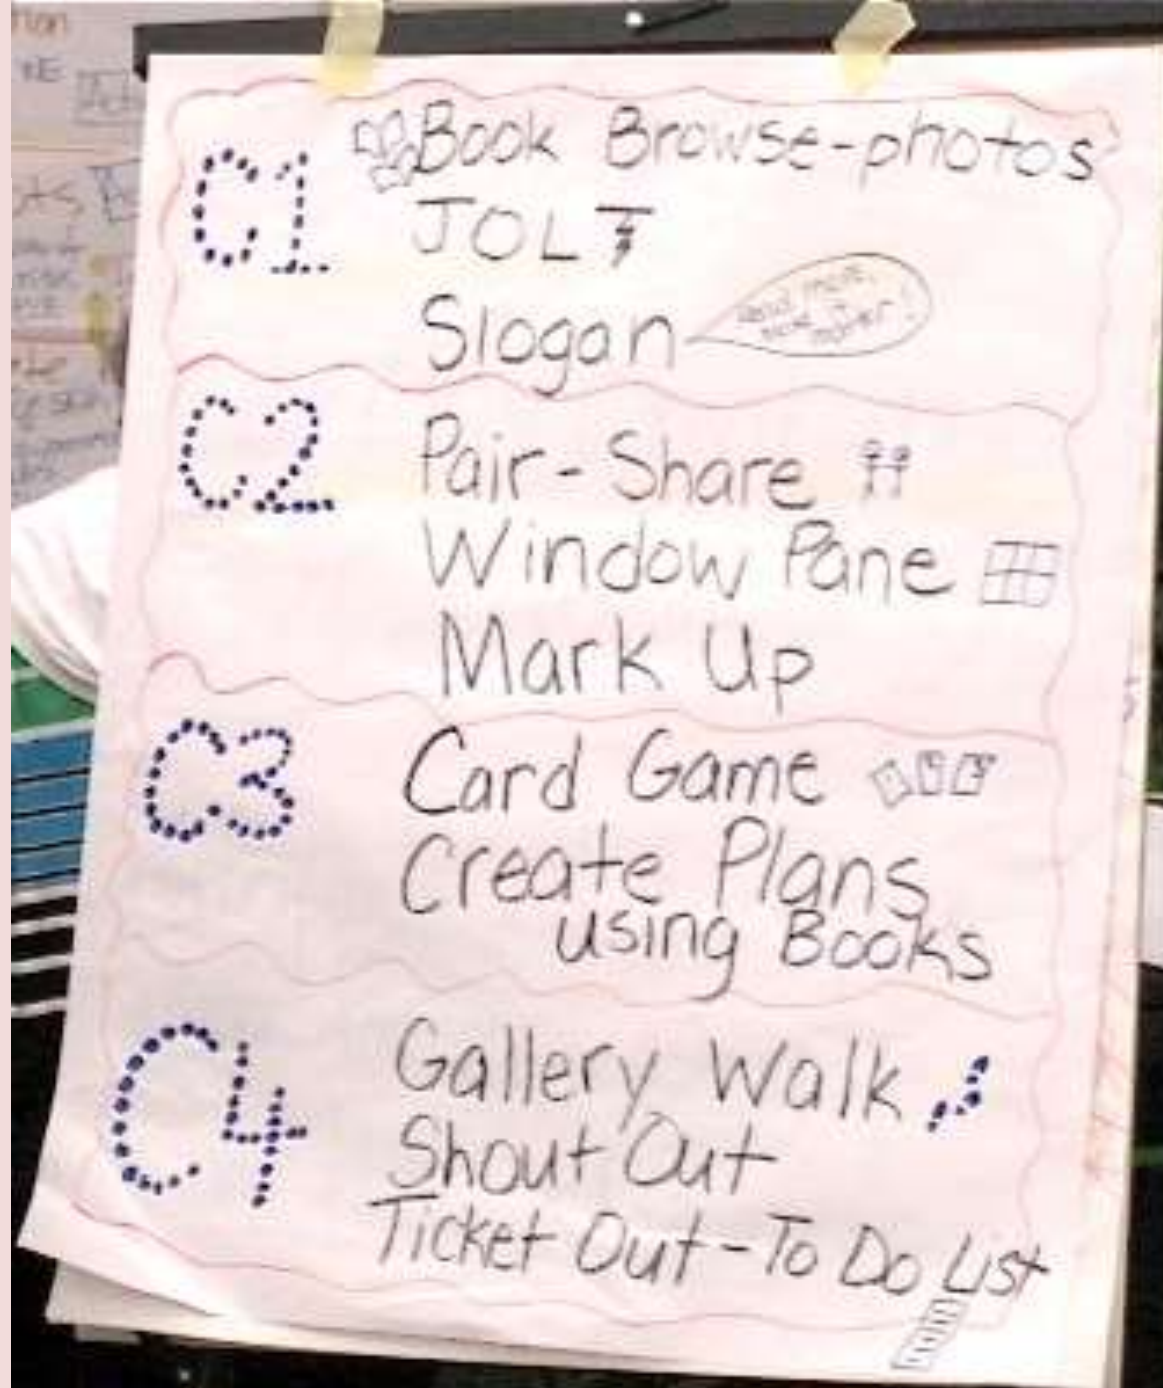 C1
Book Browse-photos
JOLT
Slogan
C2
Pair-Share
Window Pane
Mark Up
C3
Card Game
Create Plans
using Books
C4
Gallery Walk
Shout Out
Ticket Out-To Do List